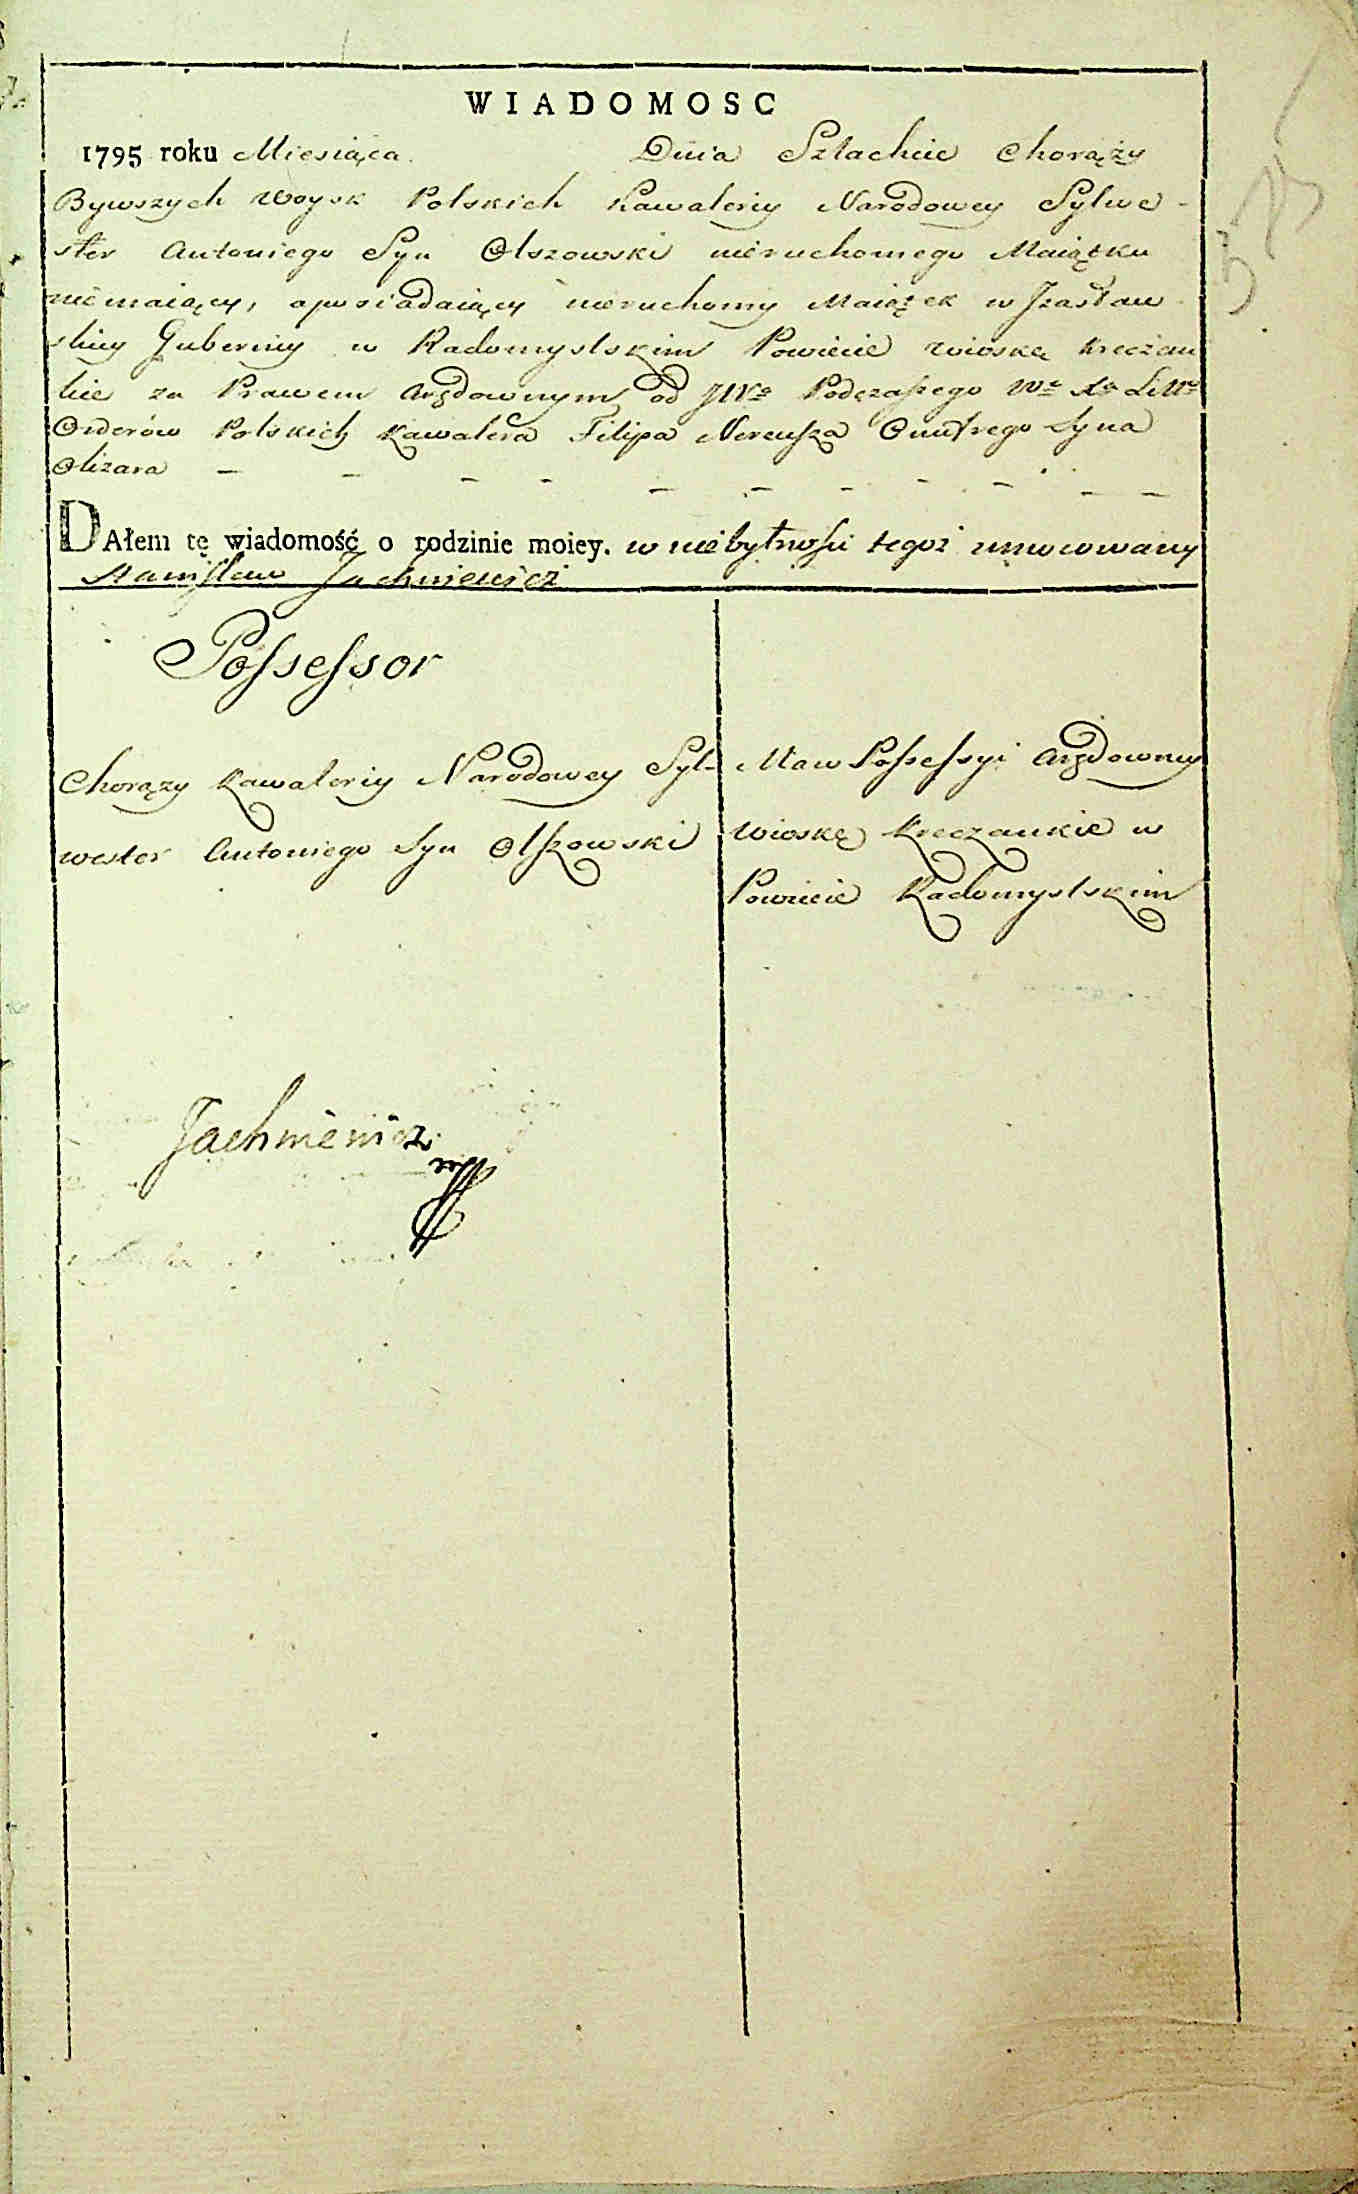 WIADOMOSC
1795 roku Miesiąca Dnia Szlachcic Chorąży
Bywszych Woysk Polskich Kawaleriy Narodowey Sylwe-
ster Antoniego Syn Olszowski nieruchomego Maiątku
niemaiący, a posiadaiący nieruchomy Maiątek w Izasław
skiey Guberniy w Radomyslskim Powiecie wioskę Kreczan
kie za Prawem Arędownym od JWo Podczaszego Wo Xa Litto
Orderów Polskich Kawalera Filipa Nereusza Onufrego Syna
Olizara
DAłem tę wiadomość o rodzinie moiey. w niebytności tegoż umocowany
Stanisław Jachniewicz
Possessor
Chorązy Kawaleriy Narodowey Syl-
wester Antoniego Syn Olszowski
Ma w Possessyi Arędowney
Wioskę Kreczankie w
Powiecie Radomyslskim
Jachniewicz
mp